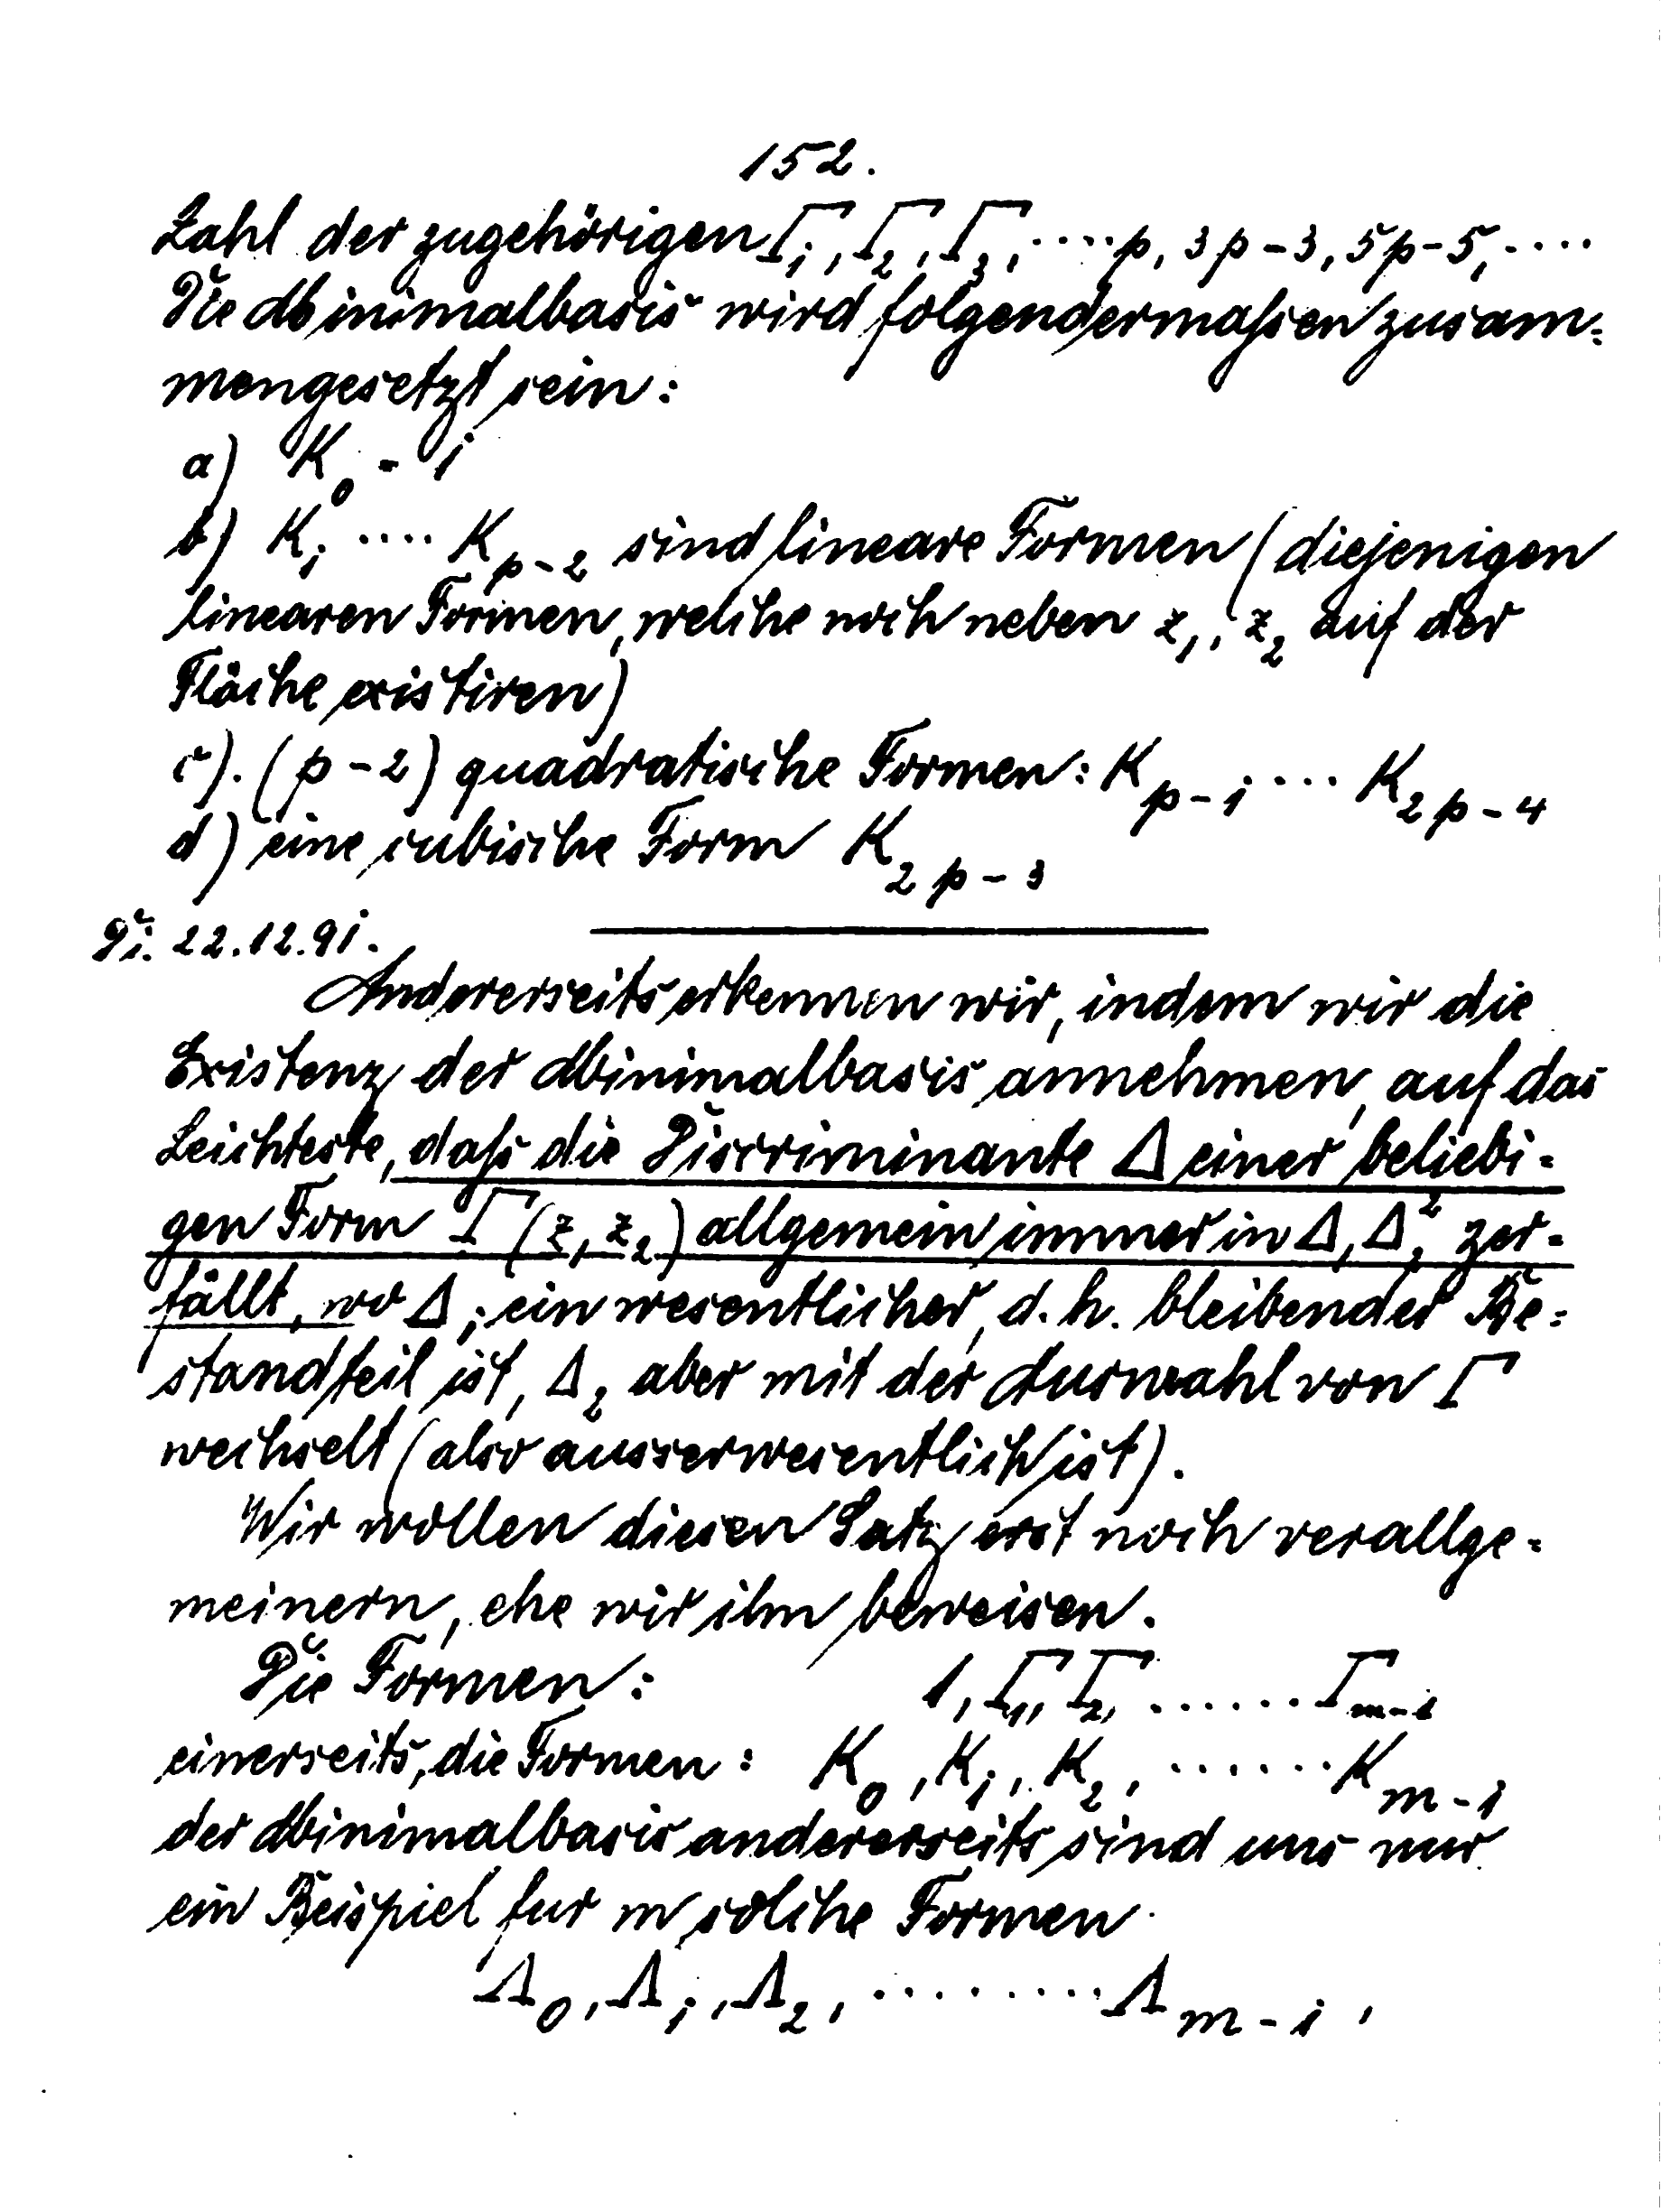 152.
Zahl der zugehörigen Γ₁, Γ₂, Γ₃, .... p, 3p-3, 5p-5, ....
Die Minimalbasis wird folgendermaßen zusam-
mengesetzt sein:
a) K₀ = 1
b) K₁ .... K_{p-2} sind lineare Formen (diejenigen
linearen Formen, welche noch neben z₁, z₂ auf der
Fläche existiren)
c). (p-2) quadratische Formen: K_{p-1} .... K_{2p-4}
d) eine cubische Form K_{2p-3}
Di. 22.12.91.
Andererseits erkennen wir, indem wir die
Existenz der Minimalbasis annehmen, auf das
Leichteste, daß die Discriminante Δ einer beliebi-
gen Form Γ(z₁ z₂) allgemein immer in Δ₁ Δ₂² zer-
fällt, wo Δ₁ ein wesentlicher, d. h. bleibender Be-
standteil ist, Δ₂ aber mit der Auswahl von Γ
wechselt (also ausserwesentlich ist).
Wir wollen diesen Satz erst noch verallge-
meinern, ehe wir ihn beweisen.
Die Formen: 1, Γ₁, Γ₂, ...... Γ_{m-1}
einerseits, die Formen: K₀, K₁, K₂, ....... K_{m-1}
der Minimalbasis andererseits sind uns nur
ein Beispiel fur m solche Formen
Λ₀, Λ₁, Λ₂, ......... Λ_{m-1},